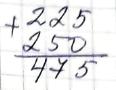 + 225
250
475